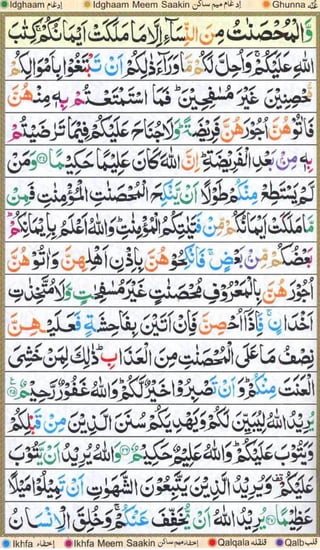 Idghaam ادغام Idghaam Meem Saakin ادغام میم ساکن Ghunna غنه
وَّالْمُحْصَنٰتُ مِنَ النِّسَآءِ اِلَّا مَا مَلَكَتْ اَيْمَانُكُمْ ۚ كِتٰبَ
اللّٰهِ عَلَيْكُمْ ۚ وَاُحِلَّ لَكُمْ مَّا وَرَآءَ ذٰلِكُمْ اَنْ تَبْتَغُوْا بِاَمْوَالِكُمْ
مُّحْصِنِيْنَ غَيْرَ مُسٰفِحِيْنَ ؕ فَمَا اسْتَمْتَعْتُمْ بِهٖ مِنْهُنَّ
فَاٰتُوْهُنَّ اُجُوْرَهُنَّ فَرِيْضَةً ؕ وَلَا جُنَاحَ عَلَيْكُمْ فِيْمَا تَرٰضَيْتُمْ
بِهٖ مِنْۢ بَعْدِ الْفَرِيْضَةِ ؕ اِنَّ اللّٰهَ كَانَ عَلِيْمًا حَكِيْمًا ﴿۲۴﴾ وَمَنْ
لَّمْ يَسْتَطِعْ مِنْكُمْ طَوْلًا اَنْ يَّنْكِحَ الْمُحْصَنٰتِ الْمُؤْمِنٰتِ فَمِنْ
مَّا مَلَكَتْ اَيْمَانُكُمْ مِّنْ فَتَيٰتِكُمُ الْمُؤْمِنٰتِ ؕ وَاللّٰهُ اَعْلَمُ بِاِيْمَانِكُمْ ؕ
بَعْضُكُمْ مِّنْۢ بَعْضٍ ۚ فَانْكِحُوْهُنَّ بِاِذْنِ اَهْلِهِنَّ وَاٰتُوْهُنَّ
اُجُوْرَهُنَّ بِالْمَعْرُوْفِ مُحْصَنٰتٍ غَيْرَ مُسٰفِحٰتٍ وَّلَا مُتَّخِذٰتِ
اَخْدَانٍ ۚ فَاِذَاۤ اُحْصِنَّ فَاِنْ اَتَيْنَ بِفَاحِشَةٍ فَعَلَيْهِنَّ
نِصْفُ مَا عَلَى الْمُحْصَنٰتِ مِنَ الْعَذَابِ ؕ ذٰلِكَ لِمَنْ خَشِىَ
الْعَنَتَ مِنْكُمْ ؕ وَاَنْ تَصْبِرُوْا خَيْرٌ لَّكُمْ ؕ وَاللّٰهُ غَفُوْرٌ رَّحِيْمٌ ﴿۲۵﴾
يُرِيْدُ اللّٰهُ لِيُبَيِّنَ لَكُمْ وَيَهْدِيَكُمْ سُنَنَ الَّذِيْنَ مِنْ قَبْلِكُمْ
وَيَتُوْبَ عَلَيْكُمْ ؕ وَاللّٰهُ عَلِيْمٌ حَكِيْمٌ ﴿۲۶﴾ وَاللّٰهُ يُرِيْدُ اَنْ يَّتُوْبَ
عَلَيْكُمْ ۫ وَيُرِيْدُ الَّذِيْنَ يَتَّبِعُوْنَ الشَّهَوٰتِ اَنْ تَمِيْلُوْا مَيْلًا
عَظِيْمًا ﴿۲۷﴾ يُرِيْدُ اللّٰهُ اَنْ يُّخَفِّفَ عَنْكُمْ ۚ وَخُلِقَ الْاِنْسَانُ
Ikhfa اخفاء Ikhfa Meem Saakin اخفاء میم ساکن Qalqala قلقله Qalb قلب